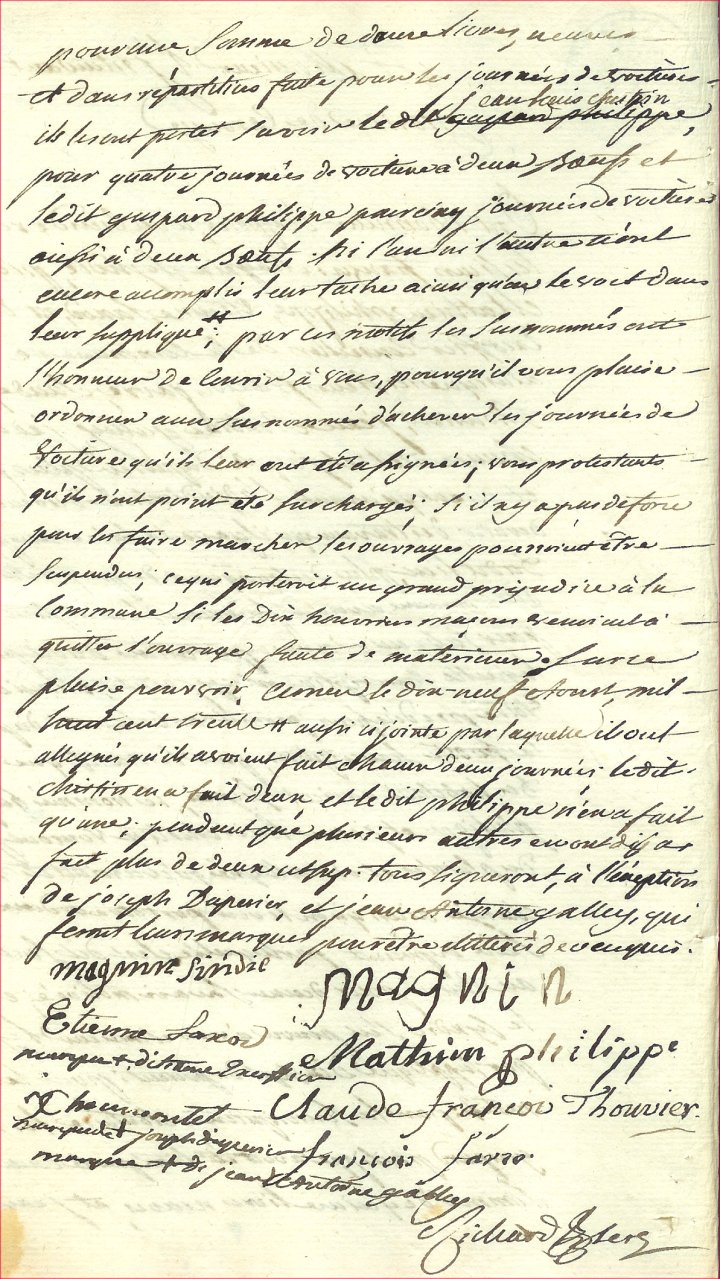 pour une somme de douze livres, neuves
et dans répartition faite pour les journées de voitures
jean louis chastin
ils les ont portés savoir le dit gaspard philippe,
pour quatre journées de voiture à deux Bœufs et
ledit gaspard philippe pour cinq journées de voitures
aussi à deux Bœufs. Ni l'un ni l'autre n'ont
encore accomplis leur tache ainsi qu'on le voit dans
leur supplique #; par ces motifs les susnommés ont
l'honneur de courir à vous, pourqu'il vous plaise
ordonner aux susnommés d'achever les journées de
Voiture qu'ils leur ont été assignées; vous protestants
qu'ils n'ont point été surchargés; si il n'y a pas de force
pour les faire marcher les ouvrages pourroient être
suspendus; ce qui porteroit un grand préjudice à la
Commune si les Dix houvriers maçons venoient à
quitter l'ouvrage faute de materieux, sur ce
plaise pourvoir, Cerneu le dix neuf Aoust, mil
huit cent trente # aussi cijointe par laquelle ils ont
allegués qu'ils avoient fait chacun deux journées. le dit
en a fait deux et le dit philippe n'en a fait
qu'une; pendant que plusieurs autres en ont déja
fait plus de deux tous signeront, à l'éxeption
de joseph Duperier, et jean Antoine galley, qui
feront leurs marques pour être illiterés de ce enquis.
magnin Sindic
Magnin
Etienne Saxod
Mathieu philippe
marque + d'etienne
Claude françoi Thouvier
Chaumontet
marque de + joseph duperier
françois farre
marque + de jean Antoine galley
Richard